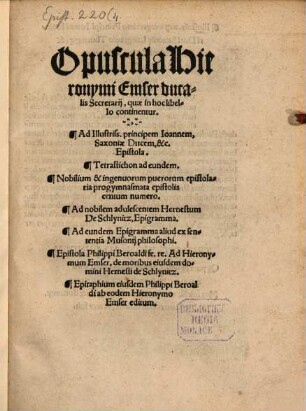 Epist. 220(4.
Opuscula Hie
ronymi Emser duca-
lis Secretarij, quæ in hoc libel-
lo continentur.
¶ Ad Illustriss. principem Ioannem,
Saxoniæ Ducem, &c.
Epistola.
Tetrastichon ad eundem.
¶ Nobilium & ingenuorum puerorum epistola-
ria progymnasmata epistolis
centum numero.
¶ Ad nobilem adulescentem Hernestum
De Schlynitz, Epigramma.
¶ Ad eundem Epigramma aliud ex sen-
tentia Musonij philosophi.
¶ Epistola Philippi Beroaldi fe. re. Ad Hierony-
mum Emser, de moribus eiusdem do-
mini Hernesti de Schlynitz.
¶ Epitaphium eiusdem Philippi Beroal
di ab eodem Hieronymo
Emser editum.
BIBLIOTHECA
REGIA
MONACENSIS